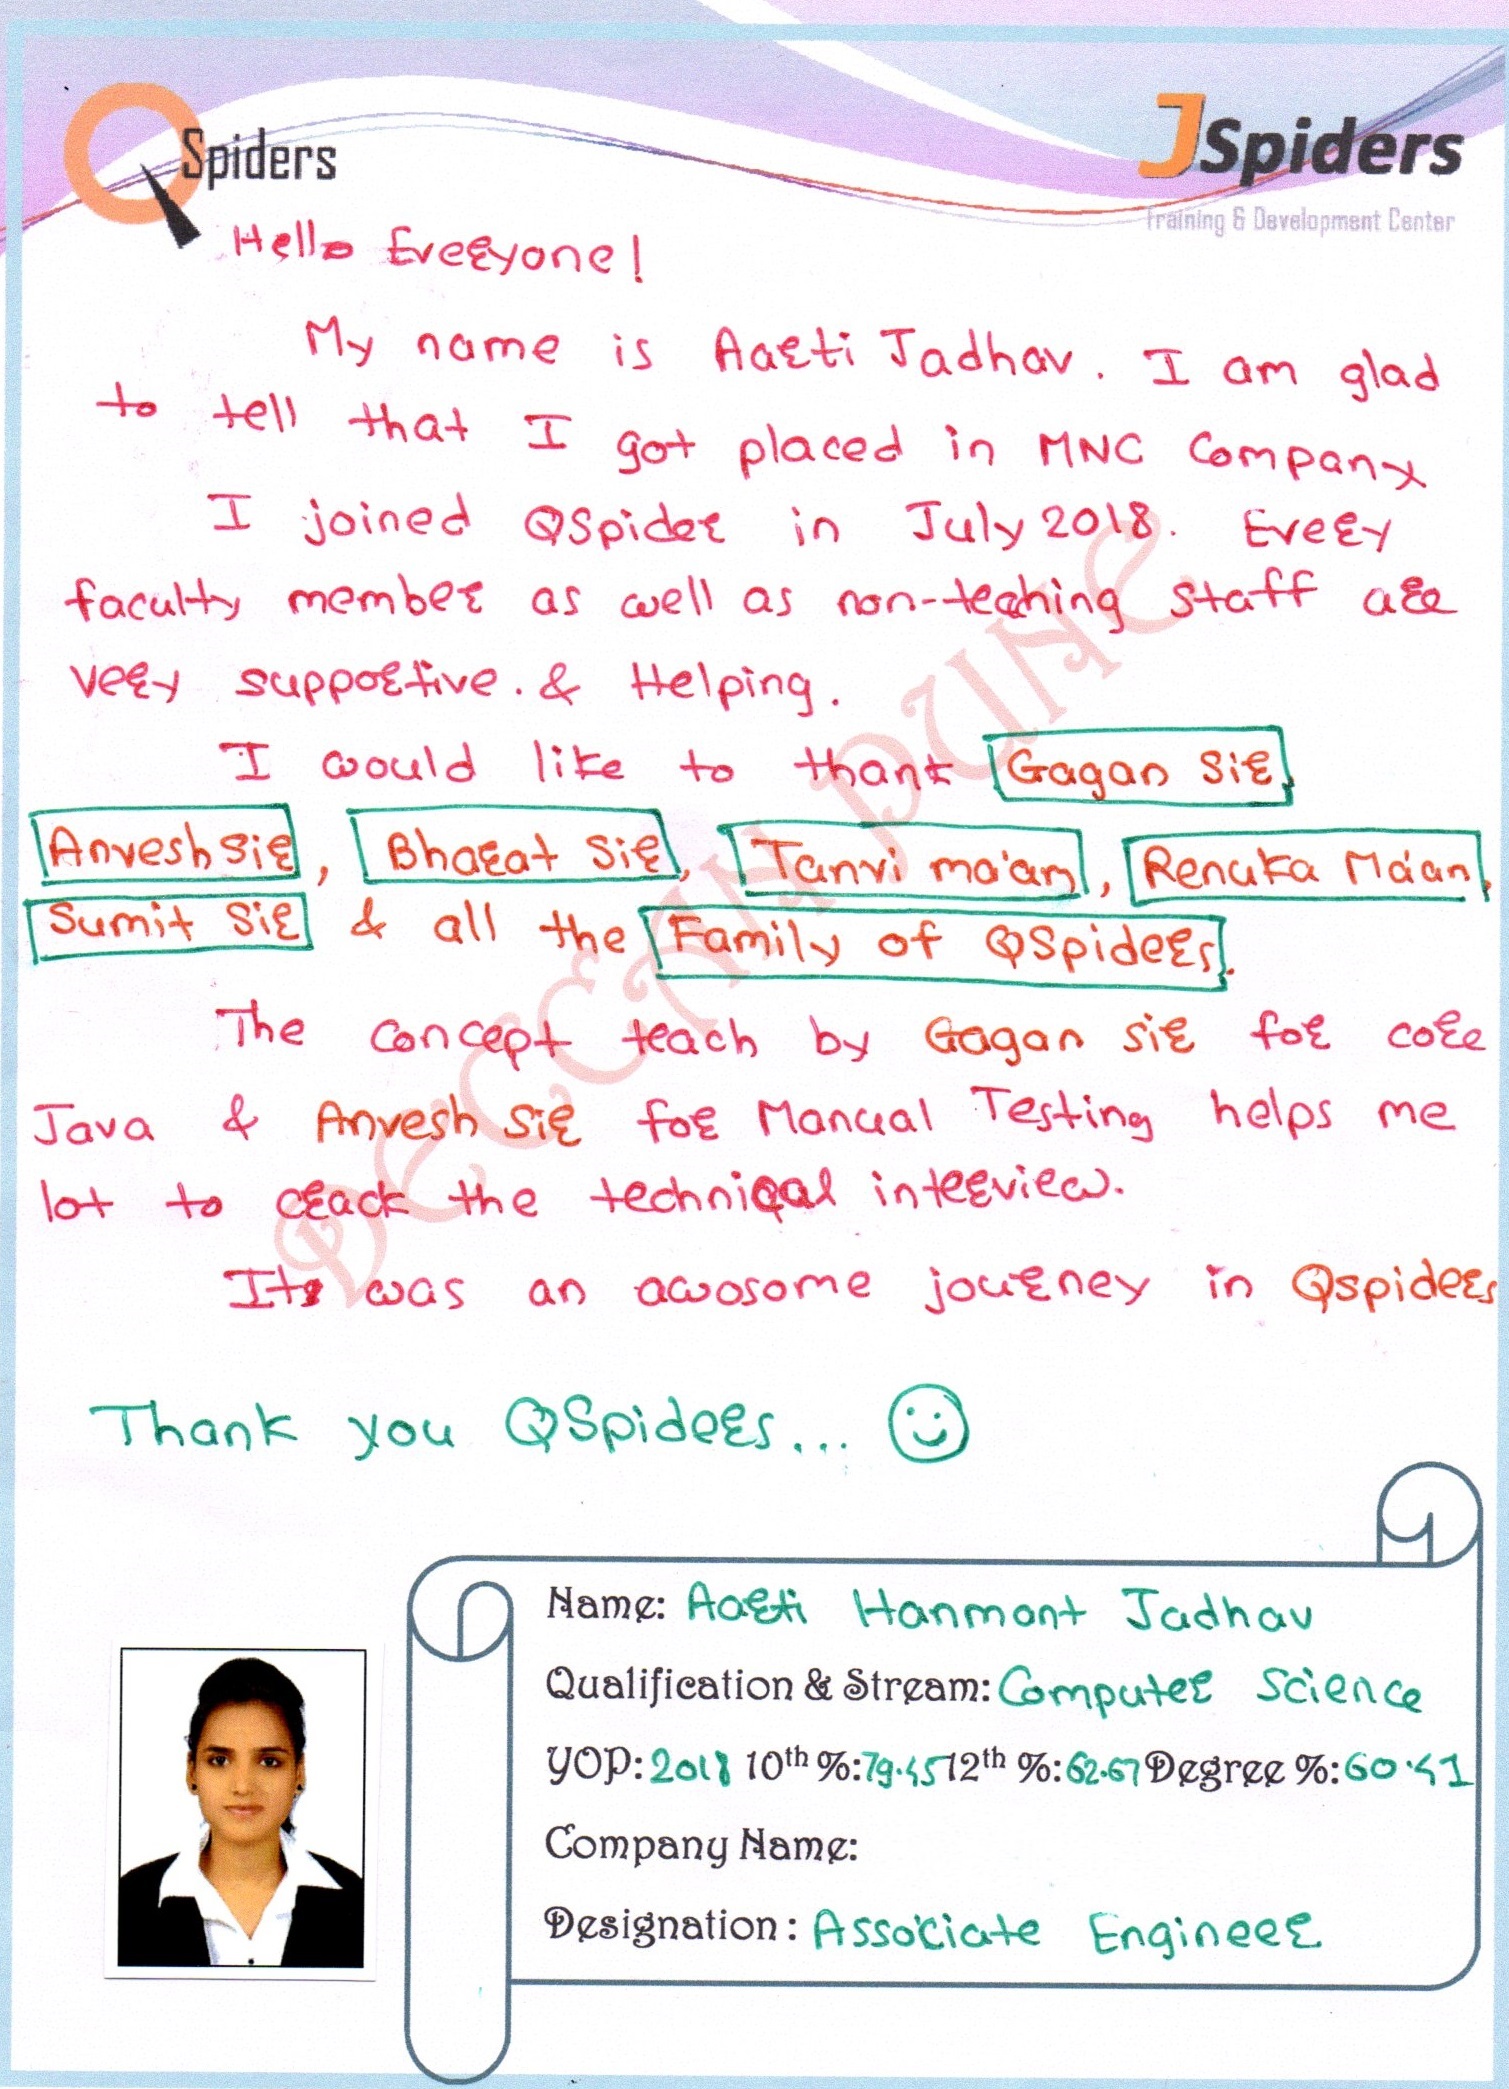 QSpiders
JSpiders
Training & Development Center
Hello Everyone!
My name is Aarti Jadhav. I am glad
to tell that I got placed in MNC Company
I joined QSpider in July 2018. Every
faculty member as well as non-teching staff are
very supportive. & Helping.
I would like to thank Gagan Sir,
Anvesh Sir, Bharat Sir, Tanvi ma'am, Renuka Ma'am,
Sumit Sir & all the Family of QSpiders.
The concept teach by Gagan Sir for core
Java & Anvesh Sir for Manual Testing helps me
lot to crack the technical interview.
It was an awosome journey in Qspiders
Thank you QSpiders... 
DECCAN PUNE
Name: Aarti Hanmant Jadhav
Qualification & Stream: Computer Science
YOP: 2018 10th %: 79.45 12th %: 62.67 Degree %: 60.41
Company Name:
Designation : Associate Engineer